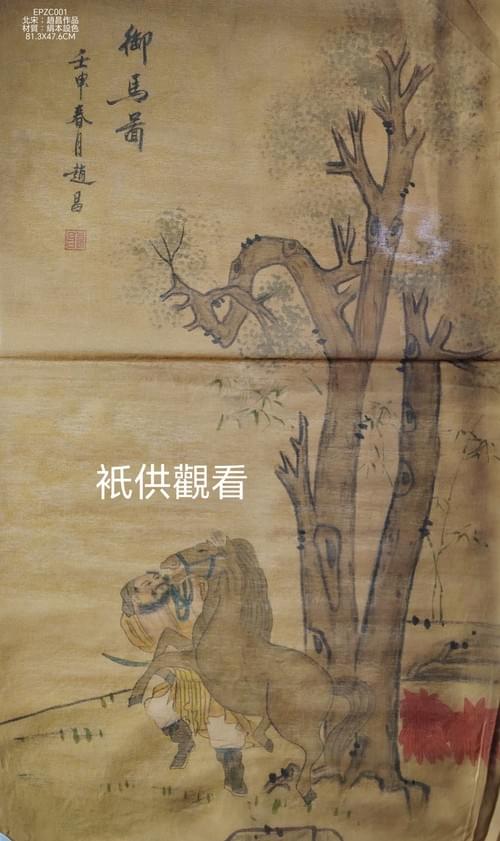 EPZC001
北宋；趙昌作品
材質：絹本設色
81.3X47.6CM
御馬圖
壬申春月趙昌
衹供觀看